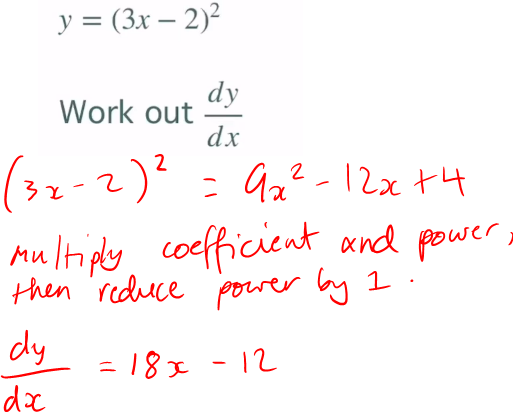 y = (3x − 2)²
Work out dy/dx
(3x - 2)² = 9x² - 12x + 4
Multiply coefficient and power,
then reduce power by 1.
dy/dx = 18x - 12